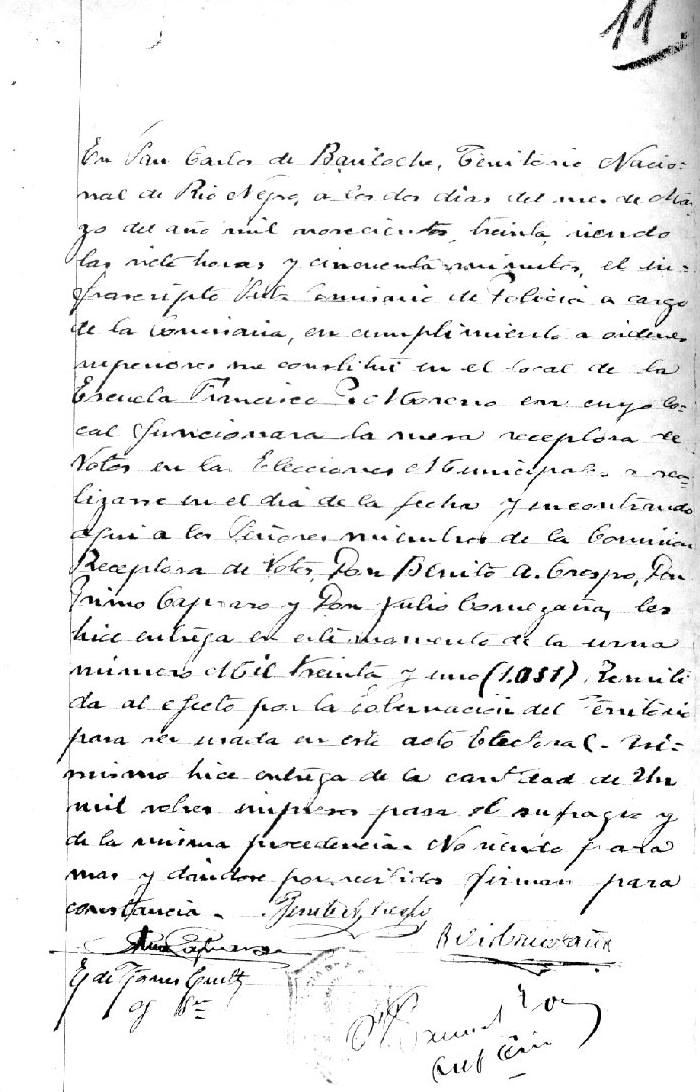 11.
En San Carlos de Bariloche, Territorio Nacio-
nal de Rio Negro, a los dos dias del mes de Mar
zo del año mil novecientos treinta, siendo
las siete horas y cincuenta minutos, el in-
frascripto Sub Comisario de Policia a cargo
de la Comisaria, en cumplimiento a ordenes
superiores me constitui en el local de la
Escuela Francisco P. Moreno en cuyo lo-
cal funcionara la mesa receptora de
Votos en las Elecciones Municipales a rea-
lizarse en el dia de la fecha y encontrando
aqui a los Señores miembros de la Comision
Receptora de Votos, Don Benito A. Crespo, Don
Primo Capraro y Don Julio Comezaña, les
hice entrega en este momento de la urna
número Mil treinta y uno (1.031) Remiti
da al efecto por la Gobernación del Territorio
para ser usada en este acto Electoral. Asi-
mismo hice entrega de la cantidad de Un
mil sobres impresos para el sufragio y
de la misma procedencia. No siendo para
mas y dándose por recibidos firman para
constancia. Benito A. Crespo
Primo Capraro
E. de Torres